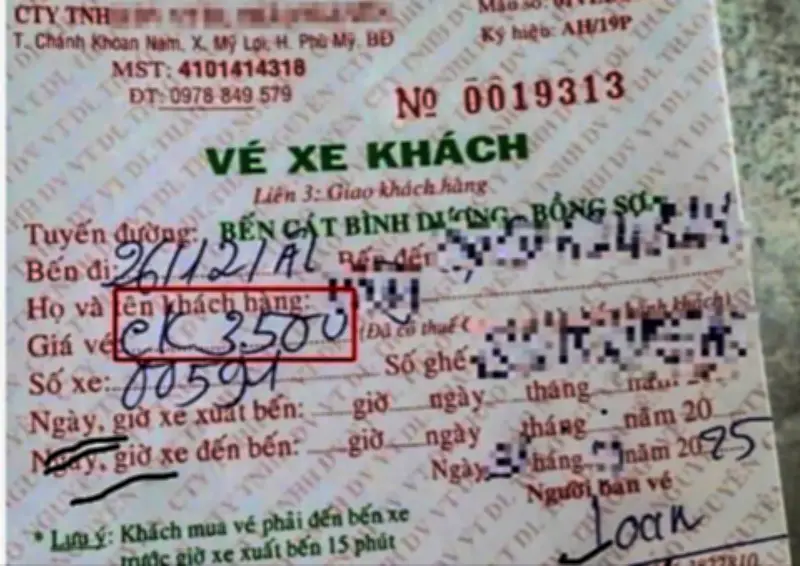 CTY TNH
T. Chánh Khoan Nam, X. Mỹ Lợi, H. Phù Mỹ, BĐ
Ký hiệu: AH/19P
MST: 4101414318
ĐT: 0978 849 579
Nº 0019313
VÉ XE KHÁCH
Liên 3: Giao khách hàng
Tuyến đường: BẾN CÁT BÌNH DƯƠNG - BỒNG SƠN
Bến đi: 26/12/Al Bến đến
Họ và tên khách hàng:
Giá vé CK 3.500 (Đã có thuế
Số xe: 00591 Số ghế
Ngày, giờ xe xuất bến: giờ ngày tháng năm 20
Ngày, giờ xe đến bến: giờ ngày tháng năm 20
Ngày tháng năm 2025
Người bán vé
Loan
* Lưu ý: Khách mua vé phải đến bến xe
trước giờ xe xuất bến 15 phút